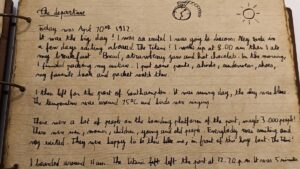 The departure
Today was April 10th 1912.
It was the big day! I was so excited I was going to discover New York in
a few days sailing aboard The Titanic! I woke up at 8.00 am then I ate
my breakfast: Bread, strawberry jam and hot chocolate. In the morning,
I finished packing my suitcase: I put some pants, shirts, underwear, shoes,
my favourite book and pocket watch too.
I then left for the port of Southampton. It was sunny day, the sky was blue.
The temperature was around 15°C and birds were singing.
There were a lot of people on the boarding platforms of the port, maybe 3 000 people!
There were men, women, children, young and old people. Everybody was smiling and
very excited. They were happy to be like me, in front of this huge boat: The Titanic!
I boarded around 11 am. The Titanic left the port at 12.20 p.m. It was 5 minutes